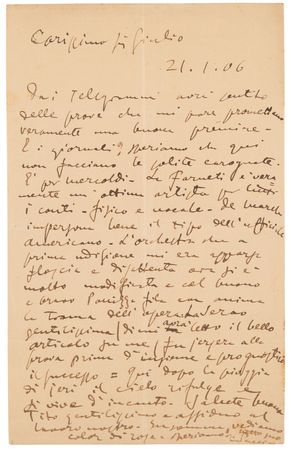 Carissimo Sig Giulio
21.1.06
Dai telegrammi avrà sentito
delle prove che mi pare promettano
veramente una buona première -
E i giornali? Speriamo che qui
non facciano le solite carognate.
E' per mercoldì - La Farneti è vera=
mente un' ottima artista per tutti
i conti - fisico e vocale - De Marchi
impersona bene il tipo dell'ufficiale
americano - L'orchestra che a
prima udizione mi era apparsa
floscia e disattenta ora si è
molto modificata e col buono
e bravo Panizza fila con anima
la trama dell'opera. Laverso
gentilissimo (di me avrà letto il bello
articolo su me) fu jersera alla
prova prima d'insieme e pronosticò
il successo = Qui dopo la pioggia
di jeri il cielo rifulge e
si vive d'incanto. Saluti buona
Tito gentilissimo e affidano al
lavoro nostro. Insomma vediamo
color di rosa - Speriamo